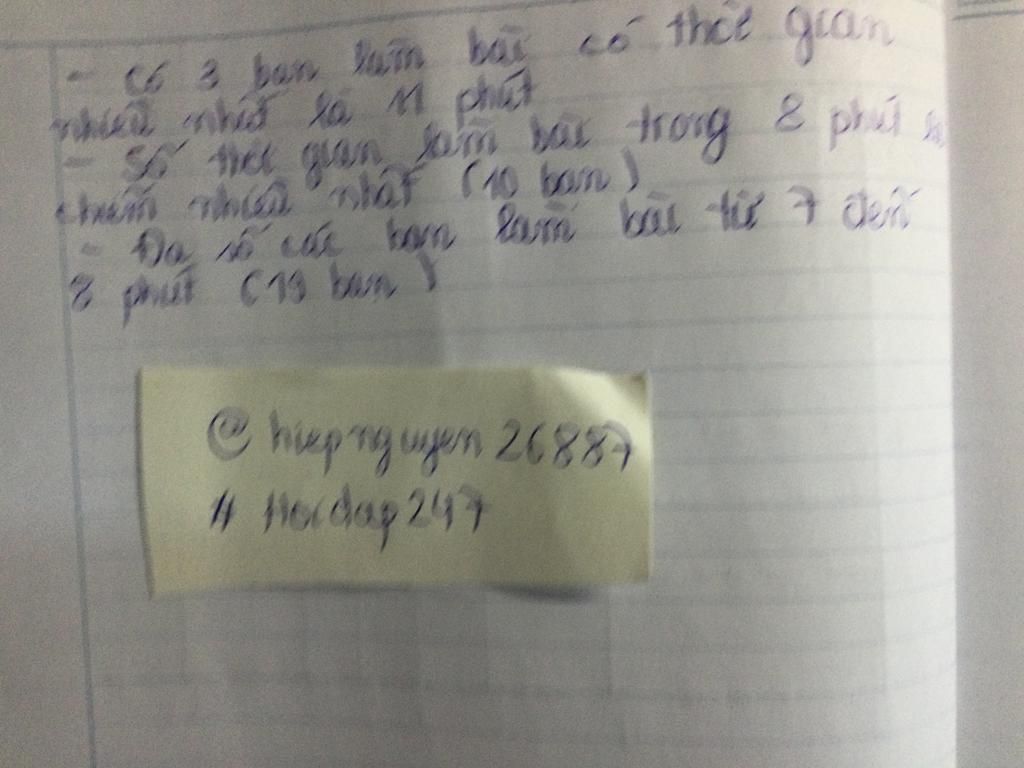 - Có 3 bạn làm bài có thời gian
nhiều nhất là 11 phút
- Số thời gian làm bài trong 8 phút là
chiếm nhiều nhất (10 bạn)
- Đa số các bạn làm bài từ 7 đến
8 phút (19 bạn)
@hiepnguyen26887
# Hoidap247